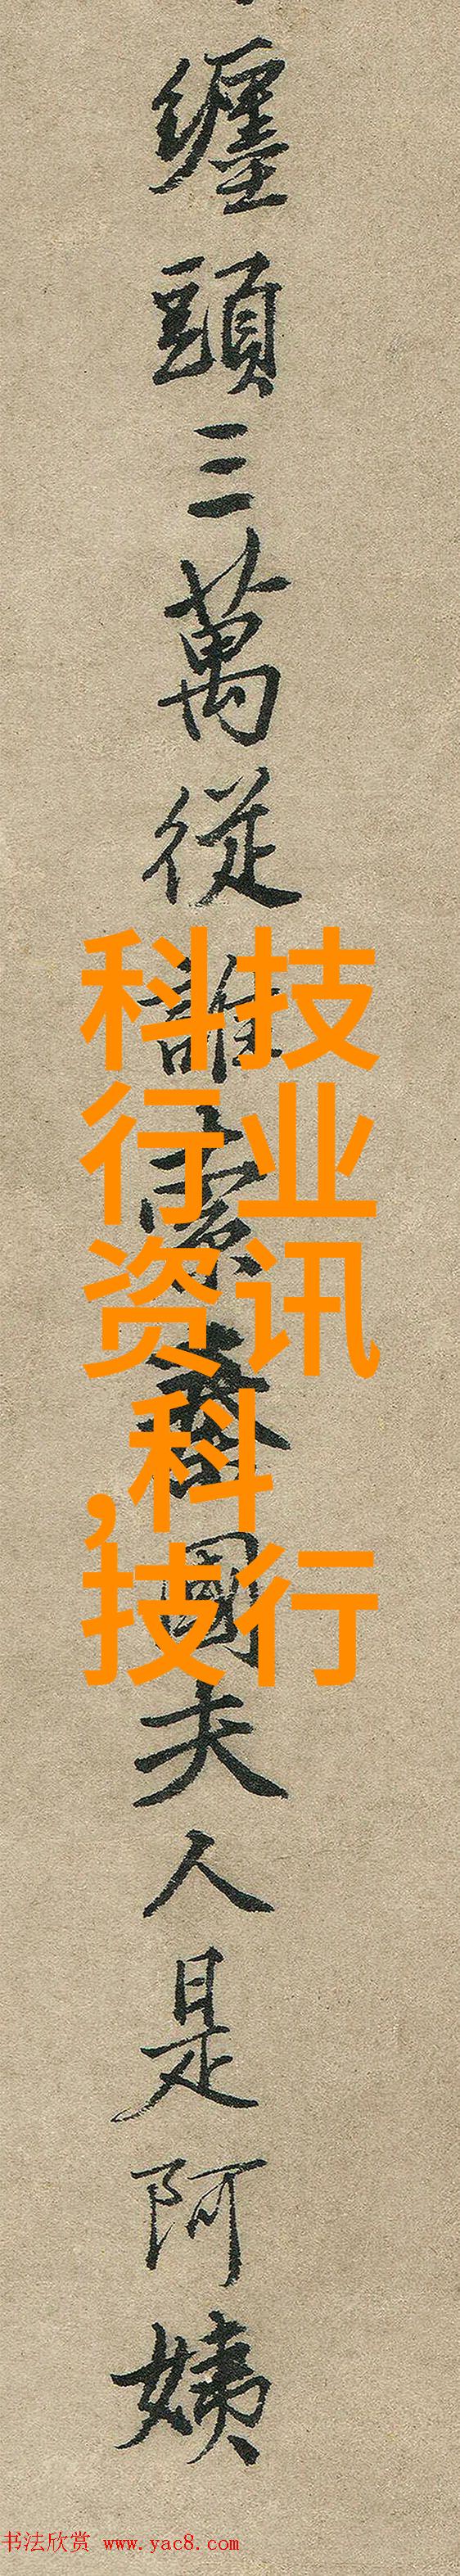 纏頭三萬從誰索秦國夫人是阿姨
科技
行业
资讯
,科
技行
书法欣赏 www.yac8.com